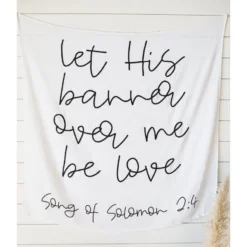 let His
banner
over me
be love
Song of Solomon 2:4